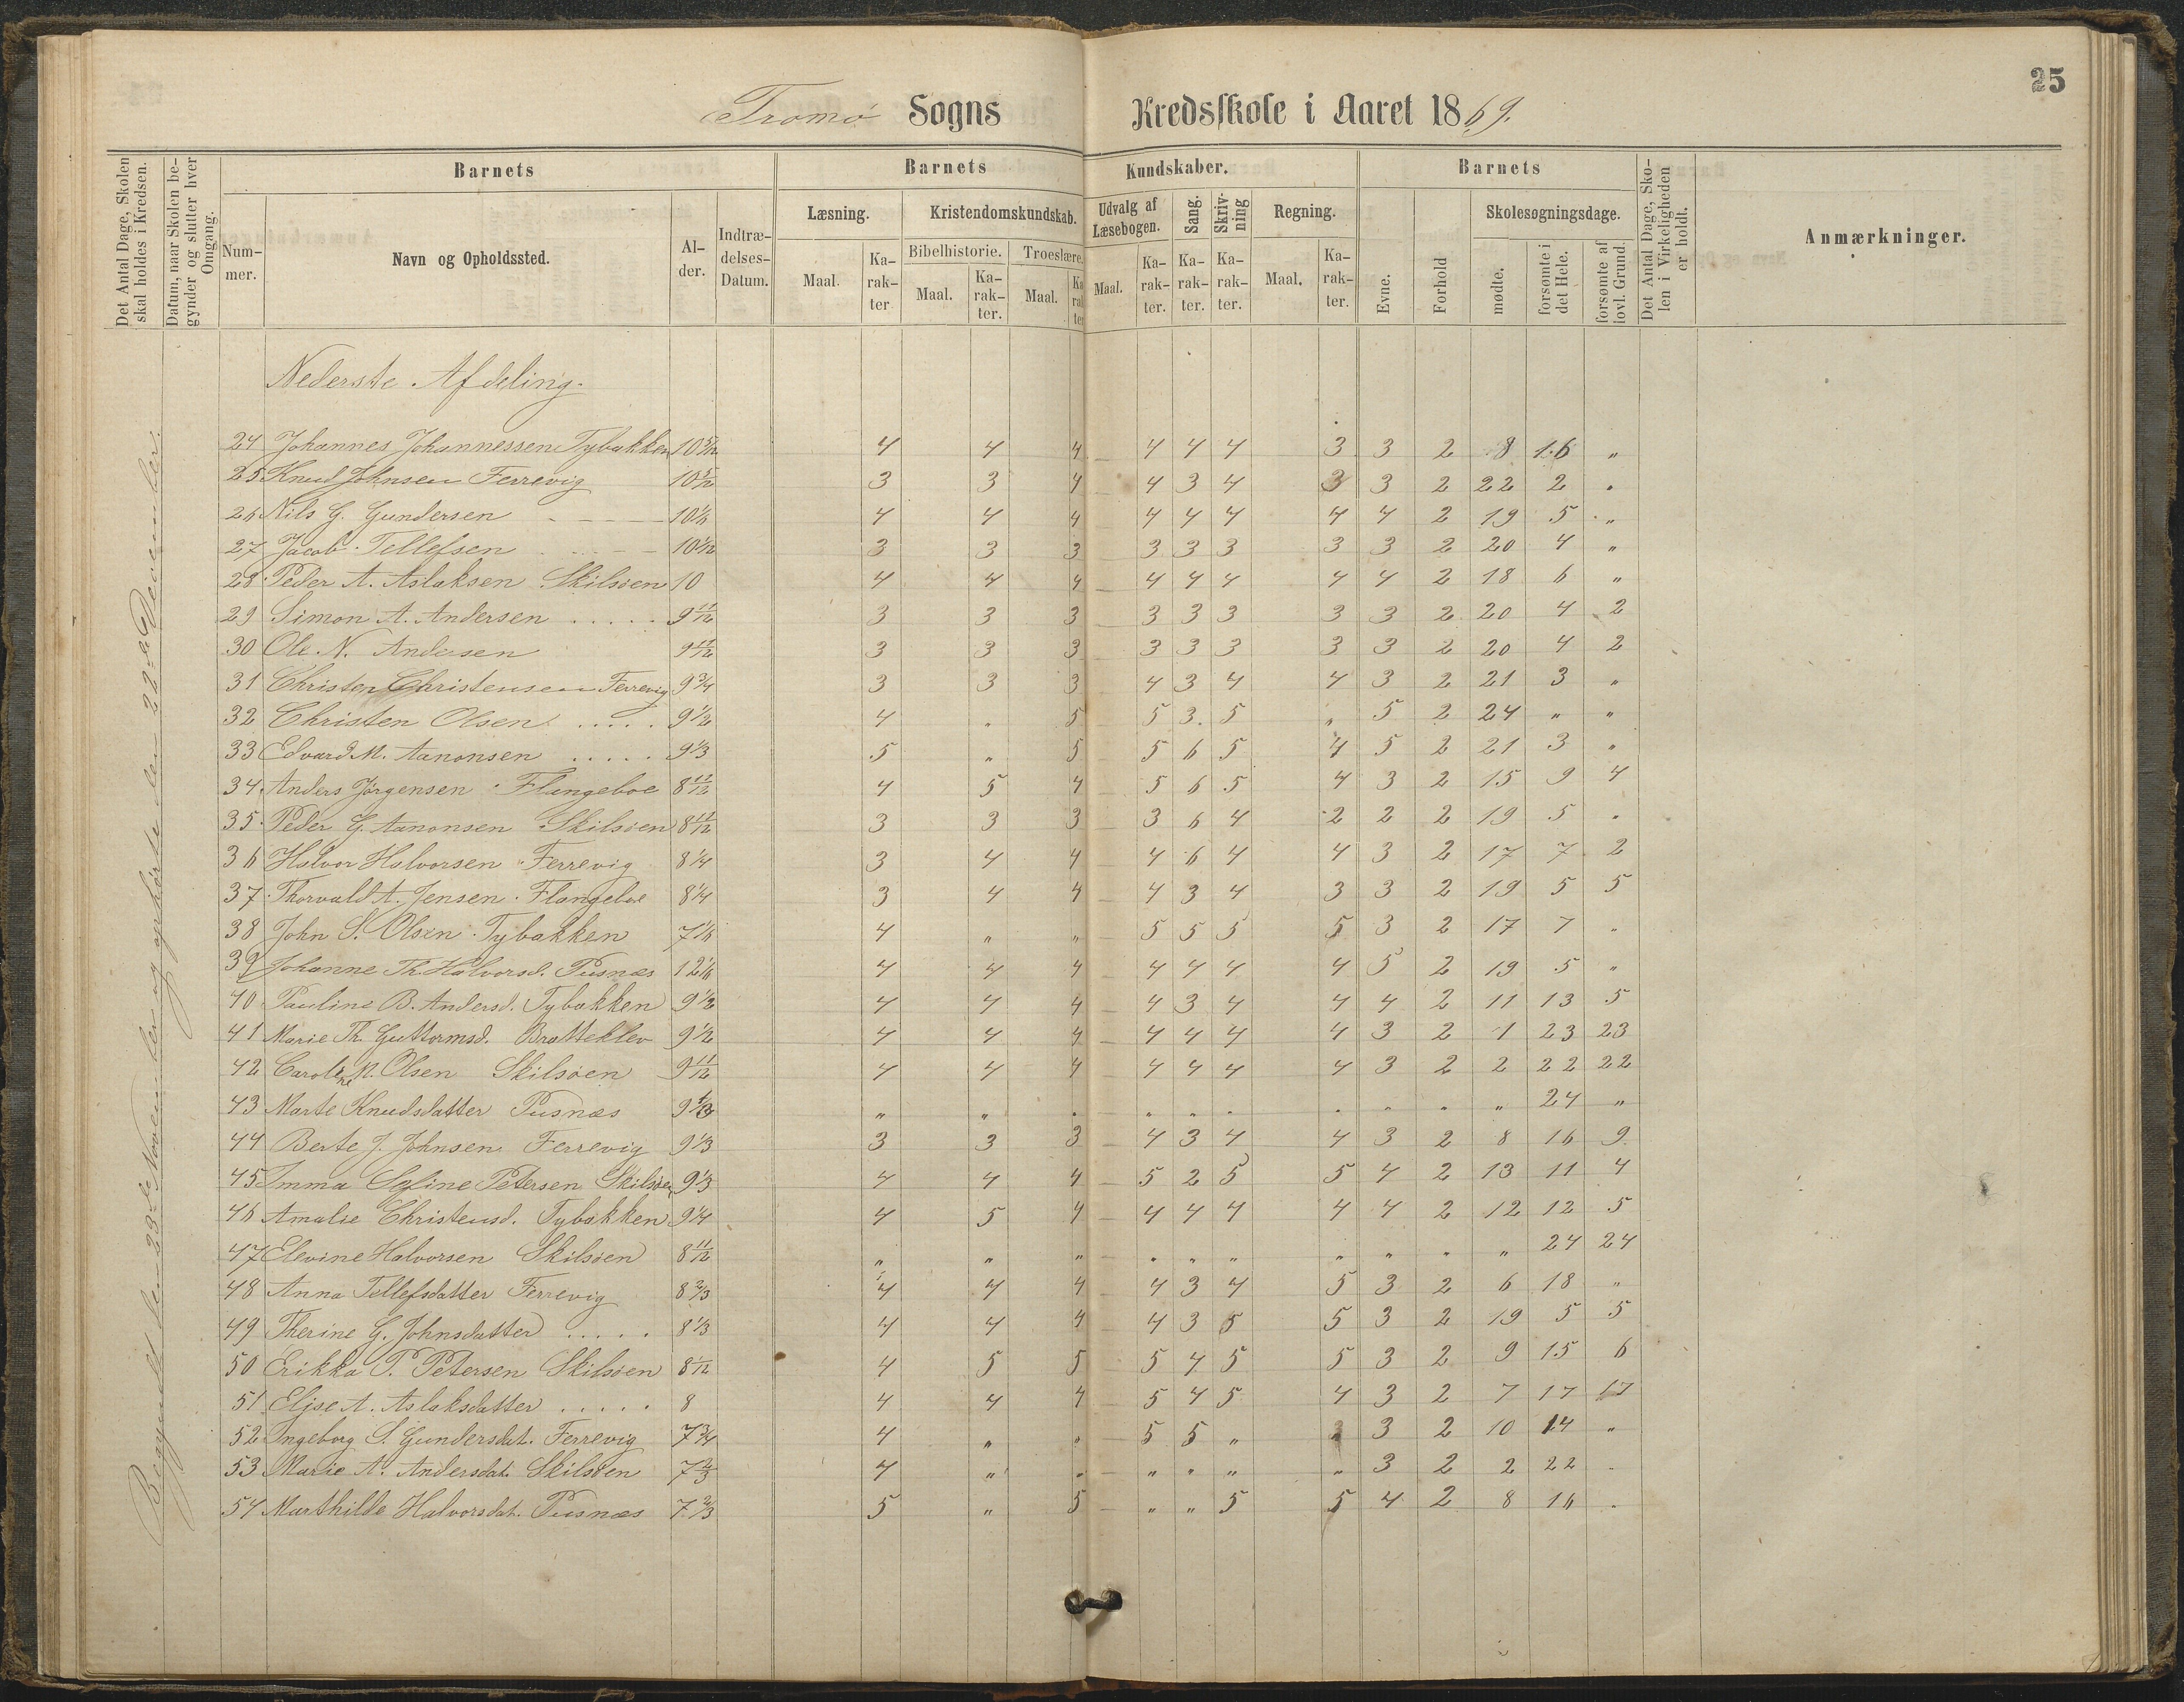 25
Tromø Sogns Kredsskole i Aaret 1869.
Det Antal Dage, Skolen skal holdes i Kredsen.
Datum, naar Skolen begynder og slutter hver Omgang.
Barnets
Barnets Kundskaber.
Barnets
Det Antal Dage, Skolen i Virkeligheden er holdt.
Anmærkninger.
Nummer.
Navn og Opholdssted.
Alder.
Indtrædelses-Datum.
Læsning.
Kristendomskundskab.
Udvalg af Læsebogen.
Sang.
Skrivning
Regning.
Evne.
Forhold
Skolesøgningsdage.
Bibelhistorie.
Troeslære.
Maal.
Karakter
Maal.
Karakter.
Maal.
Karakter
Maal.
Karakter.
Karakter.
Karakter.
Maal.
Karakter.
mødte.
forsømte i det Hele.
forsømte af lovl. Grund.
Begyndt den 23de November og ophørte den 22de December.
Nederste Afdeling.
24 Johannes Johannessen Tybakken 10 5/12 4 4 4 4 4 4 3 3 2 8 16 "
25 Knud Johnsen Ferrevig 10 5/12 3 3 4 4 3 4 3 3 2 22 2 "
26 Nils G. Gundersen - - - 10 1/6 4 4 4 4 4 4 4 4 2 19 5 "
27 Jacob Tellefsen - - - 10 1/12 3 3 3 3 3 3 3 3 2 20 4 "
28 Peder A. Aslaksen Skilsøen 10 4 4 4 4 4 4 4 4 2 18 6 "
29 Simon A. Andersen ..... 9 11/12 3 3 3 3 3 3 3 3 2 20 4 2
30 Ole N. Andersen 9 11/12 3 3 3 3 3 3 3 3 2 20 4 2
31 Christen Christensen Ferrevig 9 3/4 3 3 3 4 3 4 4 3 2 21 3 "
32 Christen Olsen ..... 9 1/2 4 " 5 5 3 5 " 5 2 24 " "
33 Edvard M. Aanonsen ..... 9 1/3 5 " 5 5 6 5 4 5 2 21 3 "
34 Anders Jørgensen Flangeboe 8 11/12 4 5 4 5 6 5 4 3 2 15 9 4
35 Peder G. Aanonsen Skilsøen 8 11/12 3 3 3 3 6 4 2 2 2 19 5 "
36 Halvor Halvorsen Ferrevig 8 1/4 3 4 4 4 6 4 4 3 2 17 7 2
37 Thorvald A. Jensen Flangeboe 8 1/4 3 4 4 4 3 4 3 3 2 19 5 5
38 John S. Olsen Tybakken 7 1/6 4 " " 5 5 5 5 3 2 17 7 "
39 Johanne Th. Halvorsd. Pusnæs 12 1/6 4 4 4 4 4 4 4 5 2 19 5 "
40 Pauline B. Andersd. Tybakken 9 1/2 4 4 4 4 3 4 4 4 2 11 13 5
41 Marie Th. Guttormsd. Bratteklev 9 1/2 4 4 4 4 4 4 4 3 2 1 23 23
42 Caroline M. Olsen Skilsøen 9 11/12 4 4 4 4 4 4 4 3 2 2 22 22
43 Marte Knudsdatter Pusnæs 9 1/3 " " " " " " " " " " 24 "
44 Berte J. Johnsen Ferrevig 9 1/3 3 3 3 4 3 4 4 3 2 8 16 9
45 Imma Sofine Petersen Skilsøen 9 1/3 4 4 4 5 2 5 5 4 2 13 11 4
46 Amalie Christensd. Tybakken 9 1/4 4 5 4 4 4 4 4 4 2 12 12 5
47 Elevine Halvorsen Skilsøen 8 11/12 " " " " " " " " " " 24 24
48 Anna Tellefsdatter Ferrevig 8 2/3 4 4 4 4 3 4 5 3 2 6 18 "
49 Therine G. Johnsdatter ..... 8 1/3 4 4 4 4 3 5 5 3 2 19 5 5
50 Erikka P. Petersen Skilsøen 8 1/12 4 5 5 5 4 5 5 3 2 9 15 6
51 Elise A. Aslaksdatter ..... 8 4 4 4 5 4 5 4 3 2 7 17 17
52 Ingeborg S. Gundersdat. Ferrevig 7 3/4 4 " " 5 5 " " 3 2 10 14 "
53 Marie A. Andersdat. Skilsøen 7 2/3 4 " " " " " " 3 2 2 22 "
54 Marthilde Halvorsdat. Pusnæs 7 2/3 5 " 5 " " 5 5 4 2 8 16 "